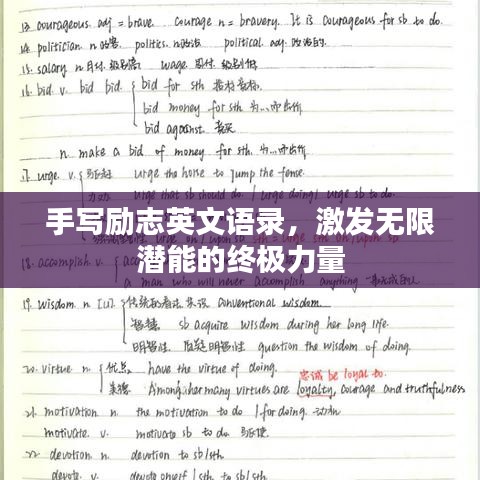 13. courageous. adj = brave. Courage n = bravery. It is courageous for sb to do.
14. politician. n 政客. politics. n 政治 political. adj. 政治的.
15. salary n 月付. wage 周付.
16. bid v. bid bid. bid for sth
bid money for sth 为…
bid against
n. make a bid of money for sth. 为…
17. urge. v. urge the horse to jump the fence.
urge that sb should do. / urge doing / urge sb to do.
手写励志英文语录，激发无限
潜能的终极力量
18. accomplish v.
a man who will never accomplish anything
19. wisdom n [U] conventional wisdom.
智慧 sb acquire wisdom during her long life.
明智性 question the wisdom of doing.
20. virtue n 优点. have the virtue of doing. 忠诚 be loyal to.
美德 Among her many virtues are loyalty, courage and truthfulness
21. motivation n the motivation to do / for doing. 动机
motivate. v. motivate sb to do
22. devotion n. devotion to sb/sth.
devote. v. devote oneself / sth to sb/sth.